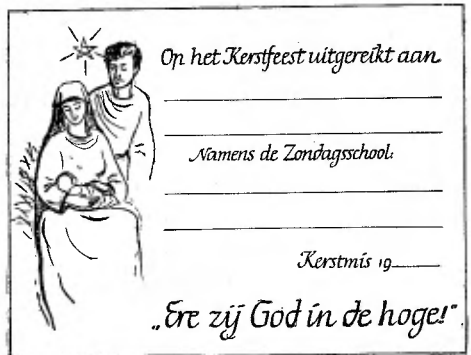 Op het Kerstfeest uitgereikt aan
Namens de Zondagsschool:
Kerstmis 19
„Ere zij God in de hoge!"